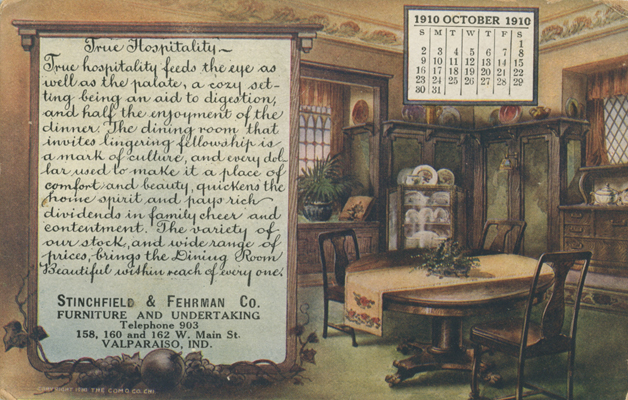 True Hospitality~
True hospitality feeds the eye as
well as the palate, a cozy set-
ting being an aid to digestion,
and half the enjoyment of the
dinner. The dining room that
invites lingering fellowship is
a mark of culture, and every dol-
lar used to make it a place of
comfort and beauty, quickens the
home spirit and pays rich
dividends in family cheer and
contentment. The variety of
our stock, and wide range of
prices, brings the Dining Room
Beautiful within reach of every one.
STINCHFIELD & FEHRMAN CO.
FURNITURE AND UNDERTAKING
Telephone 903
158, 160 and 162 W. Main St.
VALPARAISO, IND.
COPYRIGHT 1910 THE COMO CO. CHI
1910 OCTOBER 1910
S M T W T F S
1
2 3 4 5 6 7 8
9 10 11 12 13 14 15
16 17 18 19 20 21 22
23 24 25 26 27 28 29
30 31